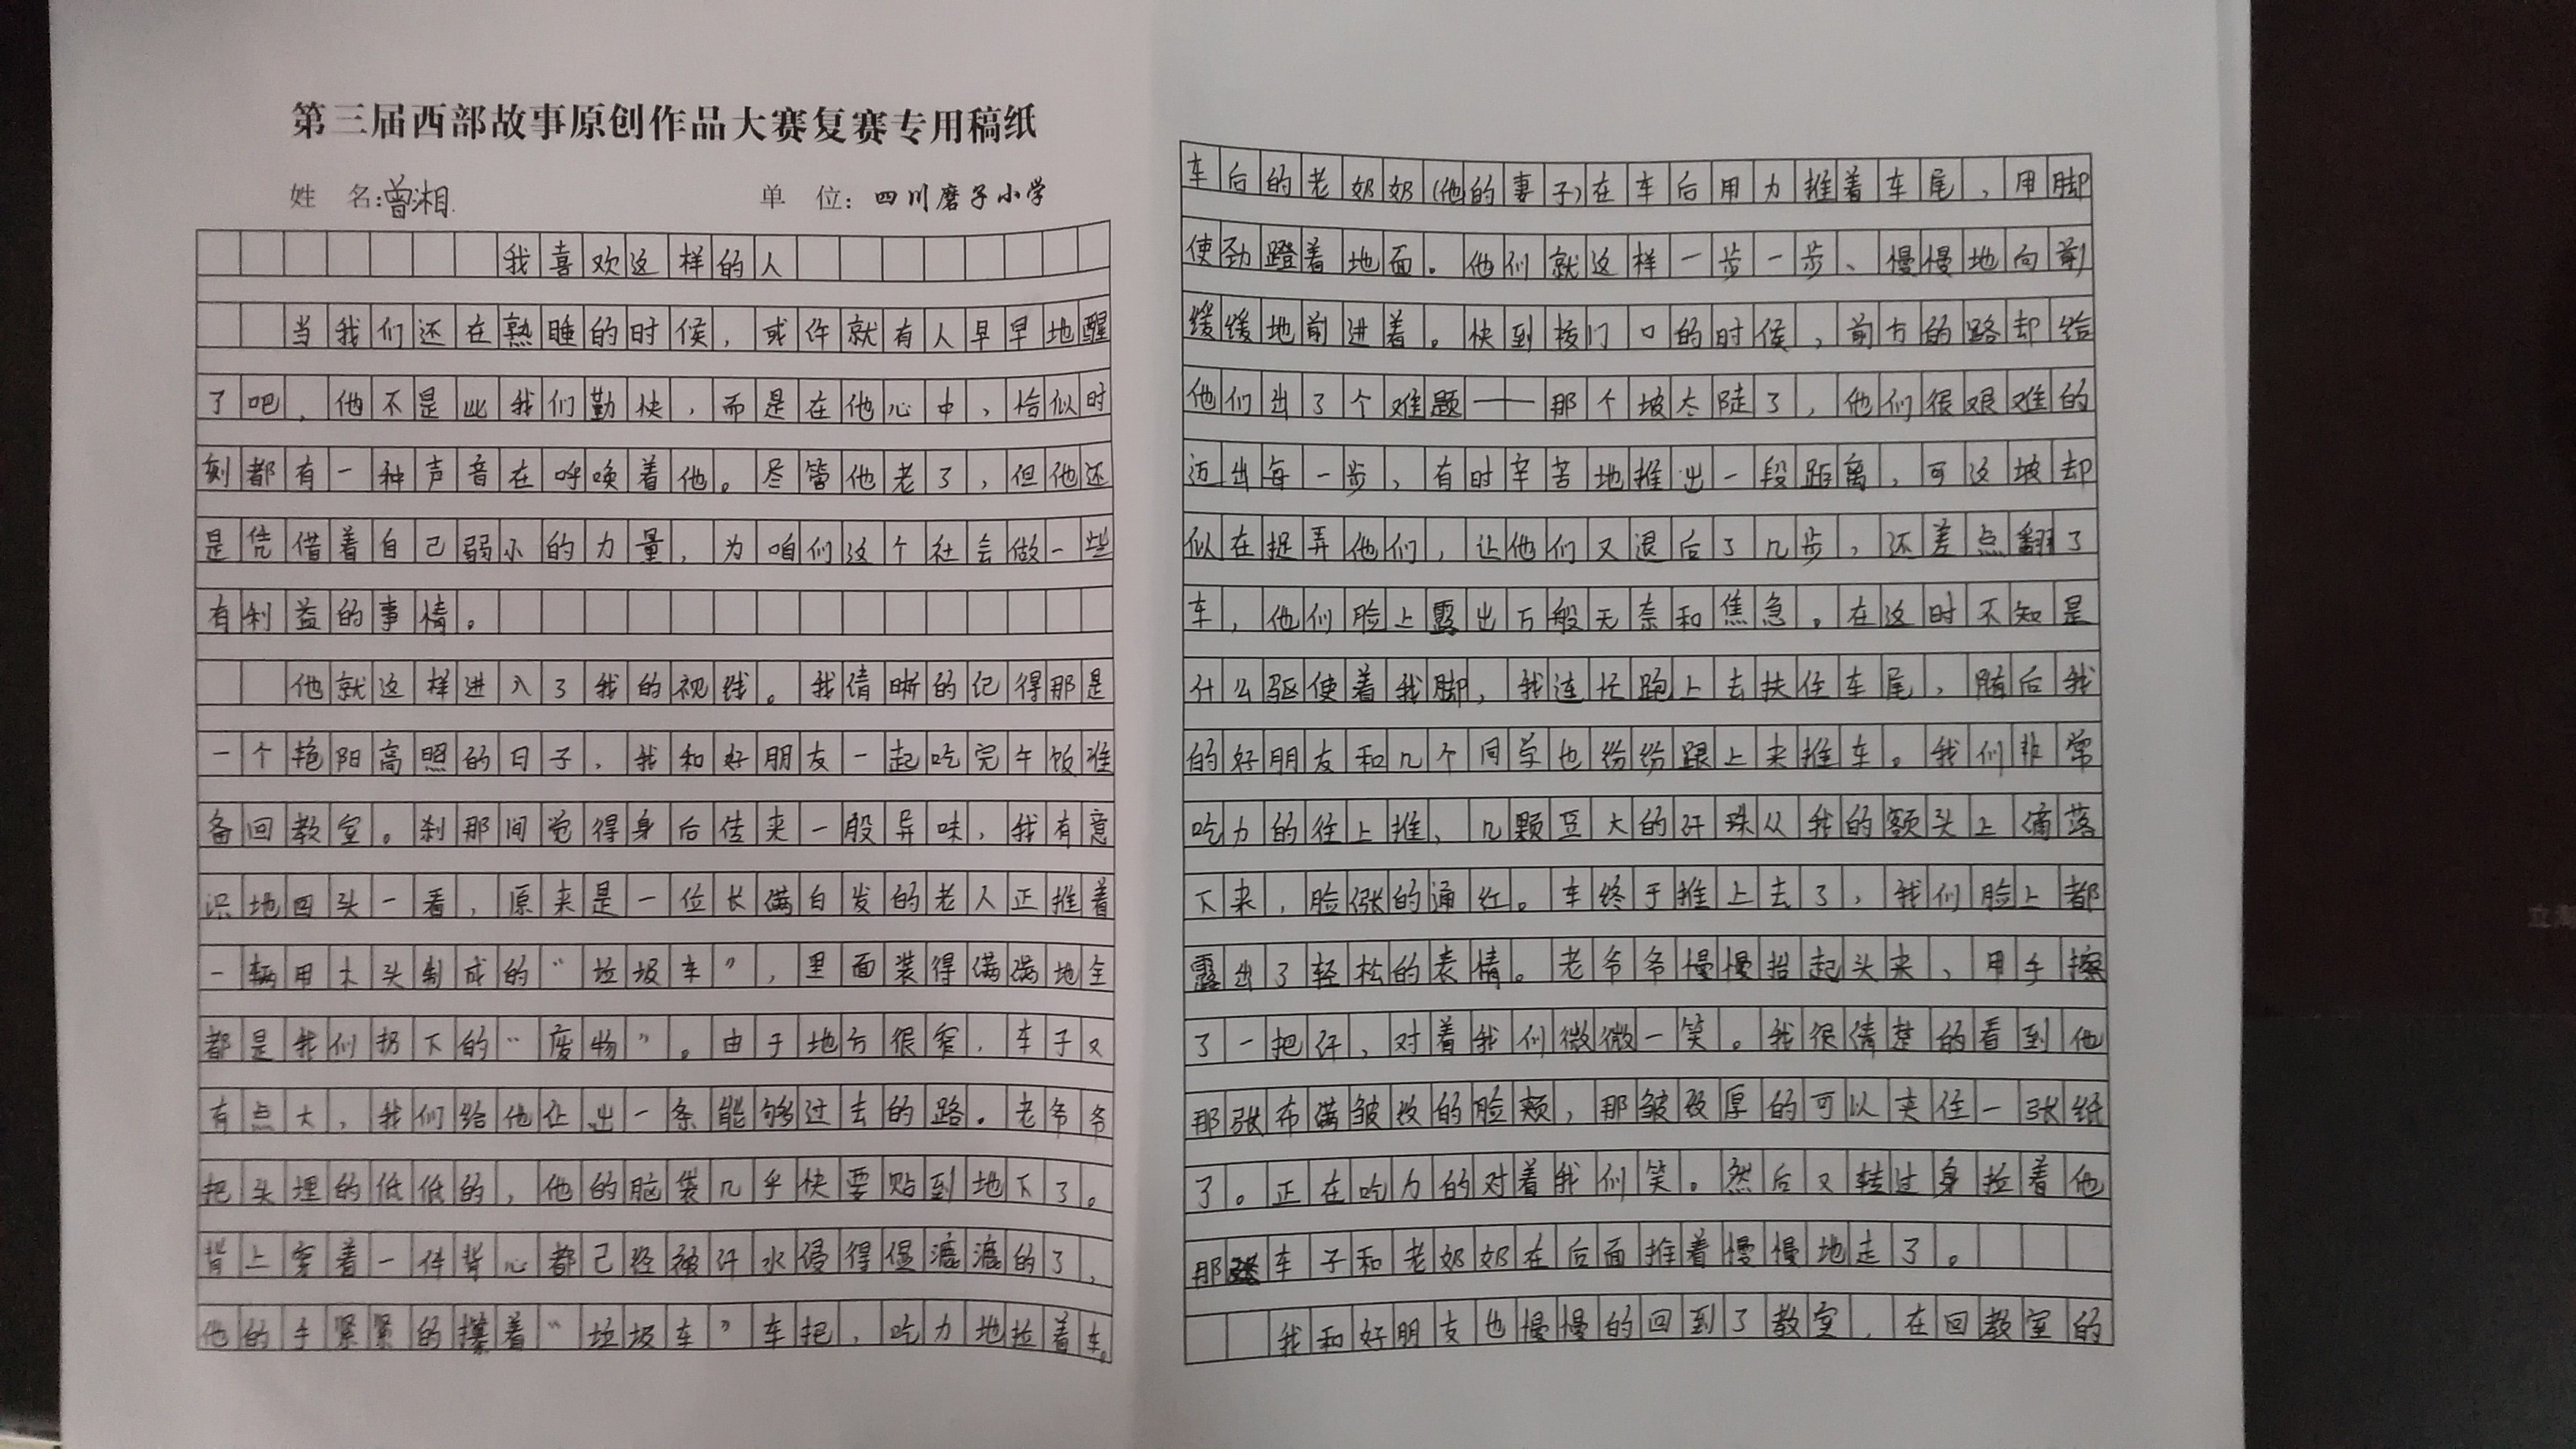 第三届西部故事原创作品大赛复赛专用稿纸
姓 名:曾湘 单 位:四川磨子小学
我喜欢这样的人
当我们还在熟睡的时候，或许就有人早早地醒
了吧，他不是比我们勤快，而是在他心中，恰似时
刻都有一种声音在呼唤着他。尽管他老了，但他还
是凭借着自己弱小的力量，为咱们这个社会做一些
有利益的事情。
他就这样进入了我的视线。我清晰的记得那是
一个艳阳高照的日子，我和好朋友一起吃完午饭准
备回教室。刹那间觉得身后传来一股异味，我有意
识地回头一看，原来是一位长满白发的老人正推着
一辆用木头制成的“垃圾车”，里面装得满满地全
都是我们扔下的“废物”。由于地方很窄，车子又
有点大，我们给他让出一条能够过去的路。老爷爷
把头埋的低低的，他的脑袋几乎快要贴到地下了。
背上穿着一件背心都已经被汗水侵得湿漉漉的了，
他的手紧紧的攥着“垃圾车”车把，吃力地拉着车。
车后的老奶奶(他的妻子)在车后用力推着车尾，用脚
使劲蹬着地面。他们就这样一步一步、慢慢地向前
缓缓地前进着。快到校门口的时候，前方的路却给
他们出了个难题——那个坡太陡了，他们很艰难的
迈出每一步，有时辛苦地推出一段距离，可这坡却
似在捉弄他们，让他们又退后了几步，还差点翻了
车，他们脸上露出万般无奈和焦急。在这时不知是
什么驱使着我脚，我连忙跑上去扶住车尾，随后我
的好朋友和几个同学也纷纷跟上来推车。我们非常
吃力的往上推，几颗豆大的汗珠从我的额头上滴落
下来，脸涨的通红。车终于推上去了，我们脸上都
露出了轻松的表情。老爷爷慢慢抬起头来，用手擦
了一把汗，对着我们微微一笑。我很清楚的看到他
那张布满皱纹的脸颊，那皱纹厚的可以夹住一张纸
了。正在吃力的对着我们笑。然后又转过身拉着他
那车子和老奶奶在后面推着慢慢地走了。
我和好朋友也慢慢的回到了教室，在回教室的